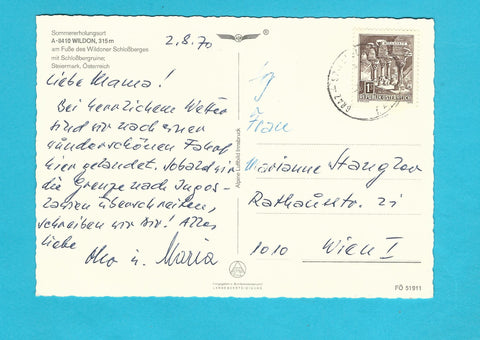 Sommererholungsort
A-8410 WILDON, 315 m
am Fuße des Wildoner Schloßberges
mit Schloßbergruine;
Steiermark, Österreich
2.8.70
Liebe Mama!
Bei herrlichem Wetter
sind wir nach einer
wunderschönen Fahrt
hier gelandet. Sobald wir
die Grenze nach Jugos-
lawien überschreiten,
schreiben wir Dir! Alles
liebe
Otto u. Maria
Alpine Luftbild Innsbruck
1 S
REPUBLIK ÖSTERREICH
Frau
Marianne Stangler
Rathausstr. 21
1010 Wien I
FÖ 51911